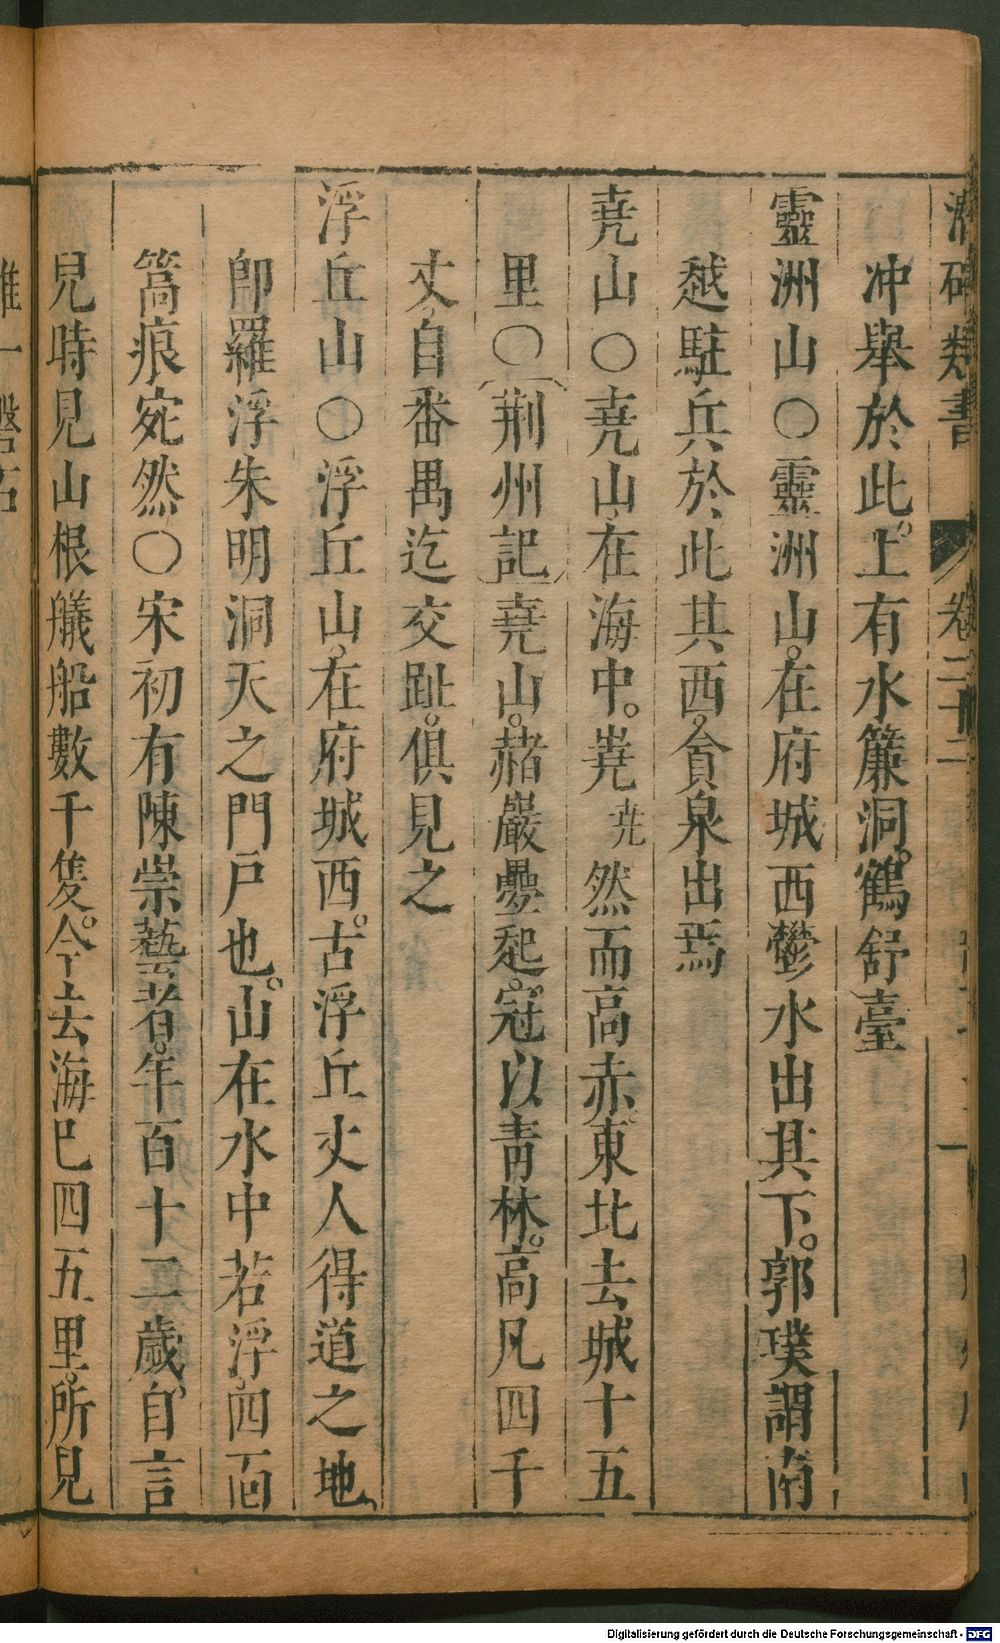 潛確類書 卷二十二
冲舉於此。上有水簾洞。鶴舒臺
靈洲山○靈洲山。在府城西鬱水出其下。郭璞謂南
越駐兵於此其西。貪泉出焉
尭山○尭山在海中。嶤尭然而高赤東北去城十五
里○荆州記尭山。赭巖疊起。冠以青林。高凡四千
丈自番禺迄交趾。俱見之
浮丘山○浮丘山。在府城西。古浮丘丈人得道之地
卽羅浮朱明洞天之門戸也。山在水中若浮。四面
篙痕宛然○宋初有陳崇藝者。年百十二歲。自言
兒時見山根艤船數千隻。今去海巳四五里。所見
雖一磐石
Digitalisierung gefördert durch die Deutsche Forschungsgemeinschaft - DFG